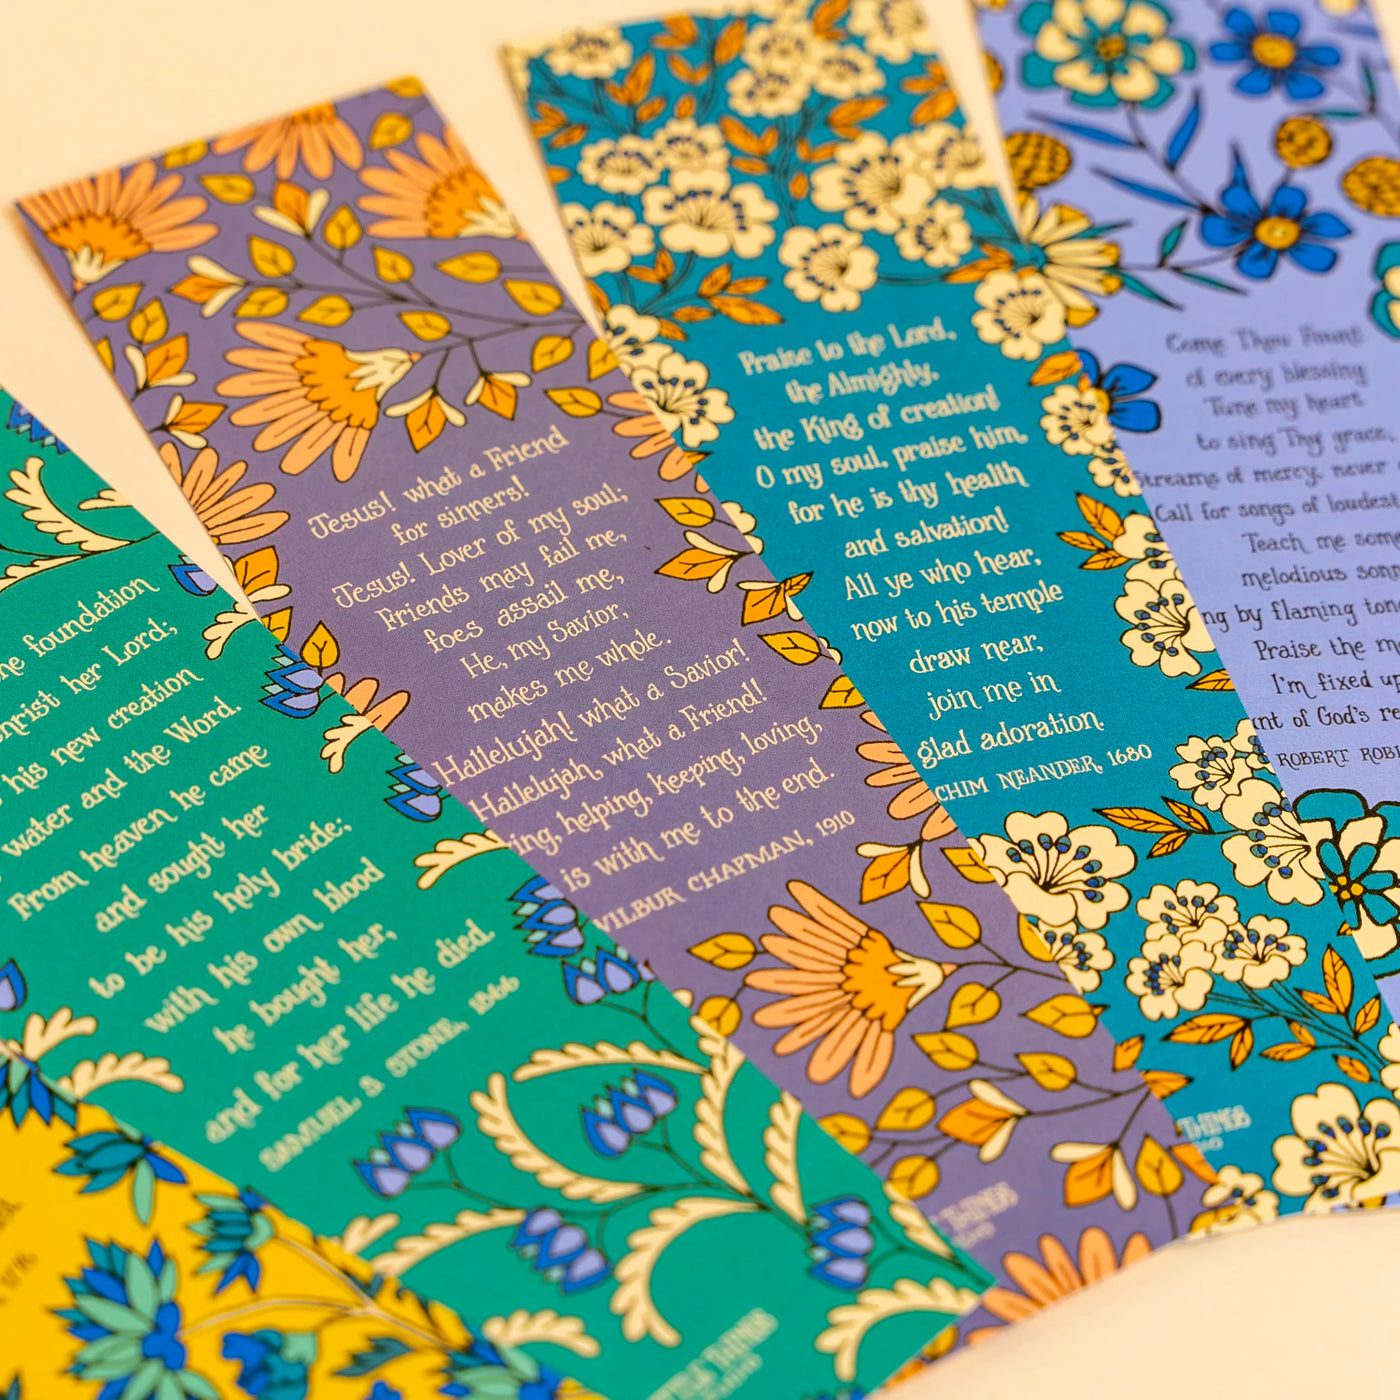 foundation
her Lord;
his new creation
water and the Word.
From heaven he came
and sought her
to be his holy bride;
with his own blood
he bought her,
and for her life he died.
SAMUEL J. STONE, 1866
Jesus! what a Friend
for sinners!
Jesus! Lover of my soul;
Friends may fail me,
foes assail me,
He, my Savior,
makes me whole.
Hallelujah! what a Savior!
Hallelujah, what a Friend!
helping, keeping, loving,
is with me to the end.
WILBUR CHAPMAN, 1910
Praise to the Lord,
the Almighty,
the King of creation!
O my soul, praise him,
for he is thy health
and salvation!
All ye who hear,
now to his temple
draw near,
join me in
glad adoration.
CHIM NEANDER, 1680
THINGS
Come Thou Fount
of every blessing
Tune my heart
to sing Thy grace,
Streams of mercy, never
Call for songs of loudes
Teach me some
melodious sonn
ng by flaming ton
Praise the m
I'm fixed up
nt of God's re
ROBERT ROB
THINGS
THINGS